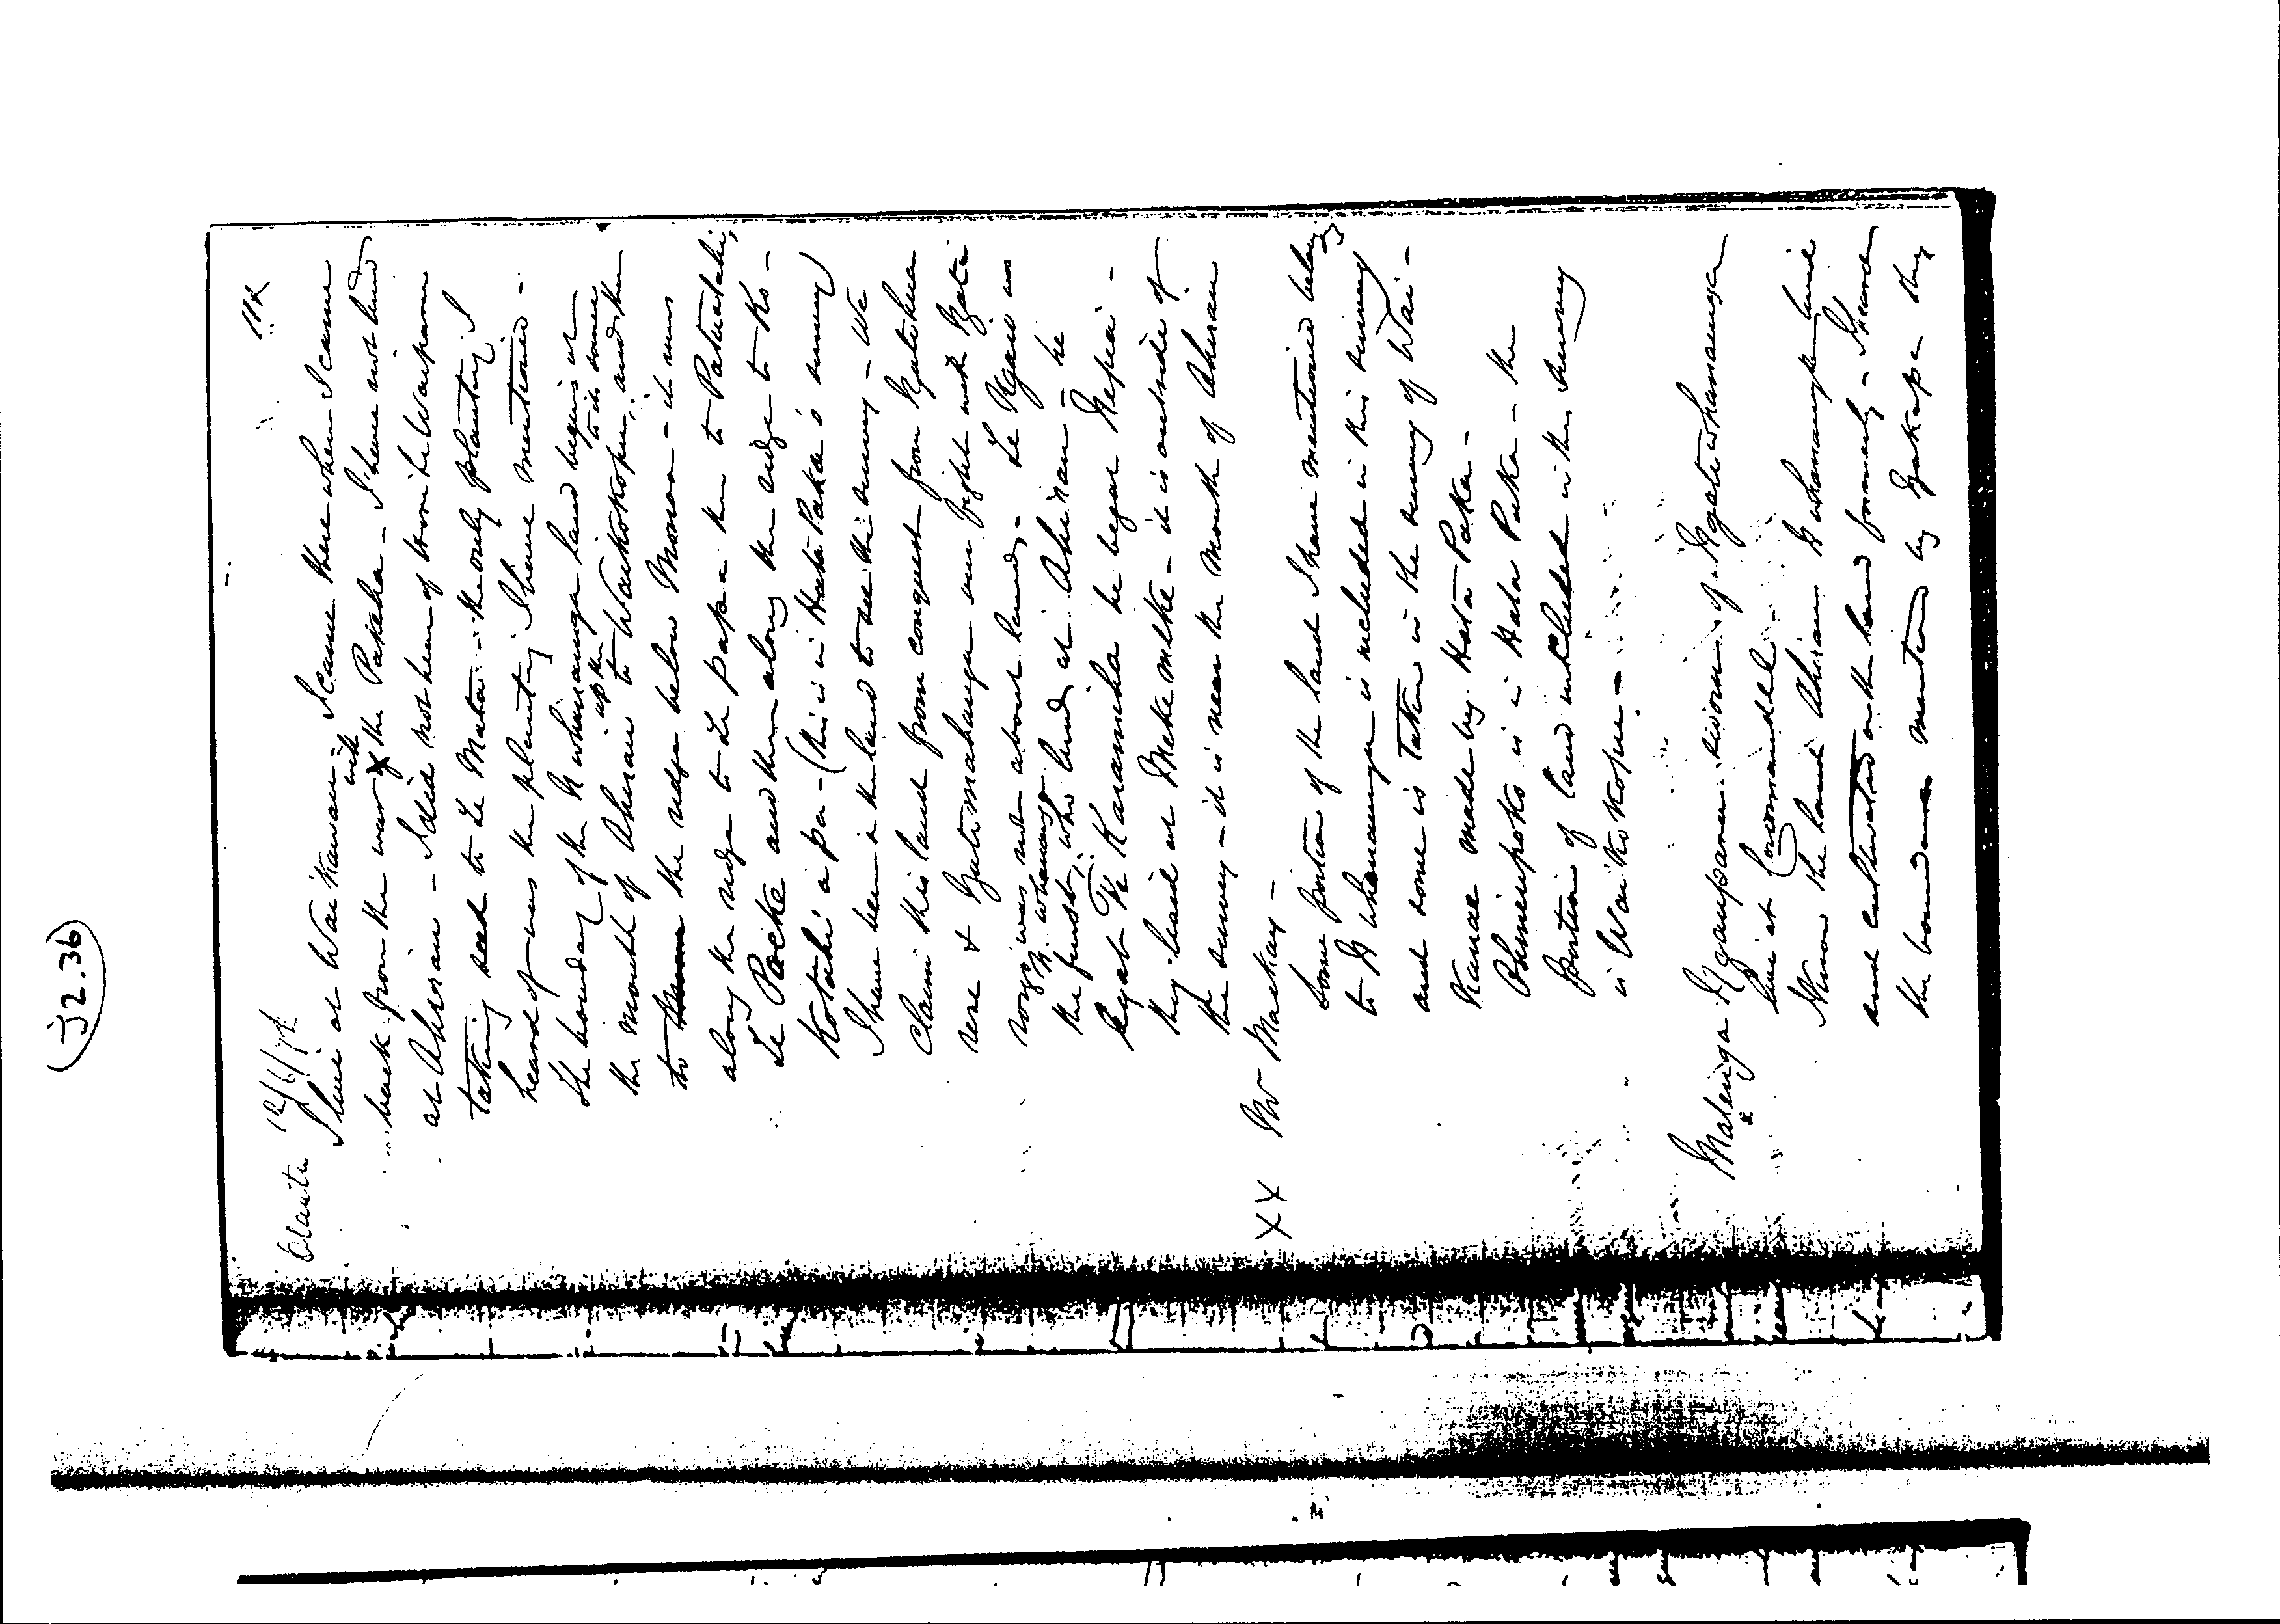 (J2.36)
112
12/6/71
I live at Wai Kawau - I came there when I came
back from the war with the Pakeha - I have not lived
at Ahirau - I did not hear of Horri te Wauparoa
taking seed to Te Mata - the only planting I
heard of was the planting I have mentioned -
The boundary of the N whanaunga land begins at
the mouth of Ahirau up the to Waikokopu, to its source and then
to the ridge below Moroa - it runs
along the ridge to Te papa then to Patuatahi,
Te Pocke and then along the ridge to Ko-
Kotahi a pa - (this is in Hata Paka's survey)
I have been on the land to see the survey - We
claim this land from conquest from Ngatihura
rere & Ngatimahanga our fight with Ngati
rongo was not about land - Te Ngau was
the first N. whanaunga who lived at Ahirau - he
begat Te Karamiha he begat Hepiri -
they lived at Mekemeke - it is outside of
the survey - it is near the mouth of Ahirau
XX Mr Mackay -
Some portion of the land I have mentioned belong
to N whanaunga is included in this survey
and some is taken in the survey of Wai-
Kanae made by Hata Paka -
Ohineupoko is in Hata Paka - the
portion of land included in the survey
is Waikokopu -
Matenga Ngaupara sworn of Ngatiwhanaunga
live at Coromandel -
Know the land Ahirau N whanaunga lived
and cultivated on the land formerly - I heard
the boundaries mentioned by Ngakapa they